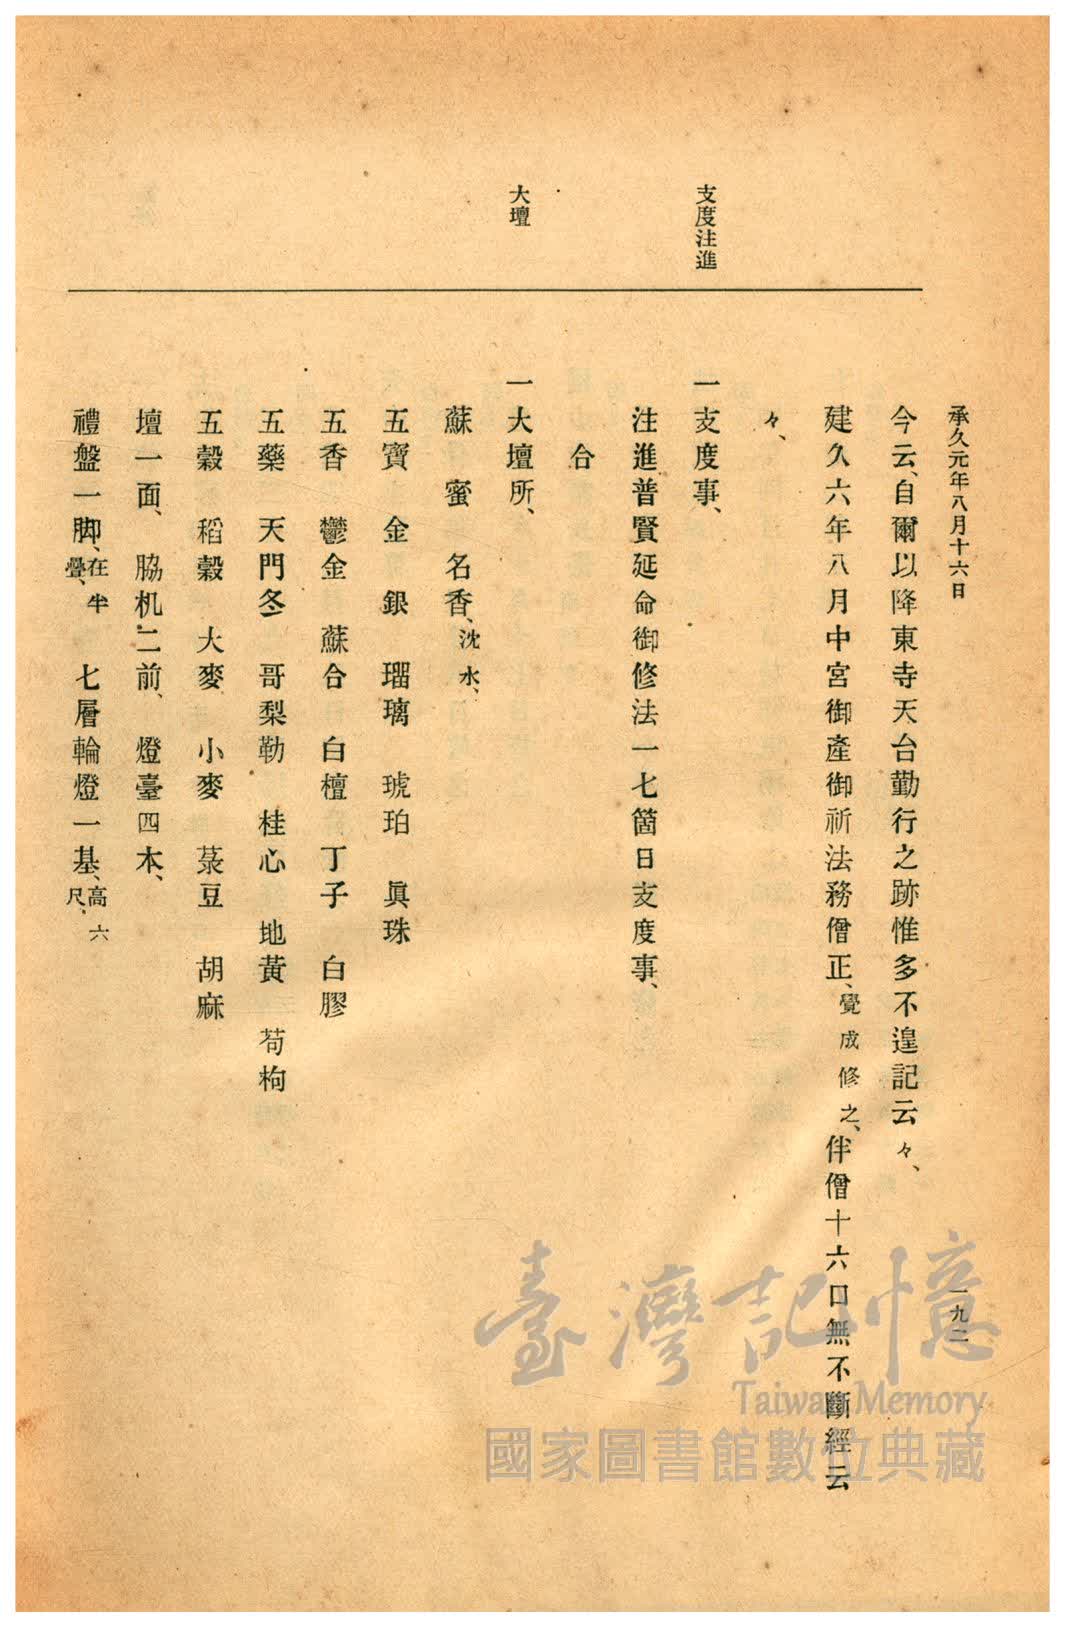 承久元年八月十六日
一九二
今云、自爾以降東寺天台勤行之跡惟多不遑記云々、
建久六年八月中宮御產御祈法務僧正、覺成修之、伴僧十六口無不斷經云
々、
支度注進
一支度事、
注進普賢延命御修法一七箇日支度事、
合
大壇
一大壇所、
蘇 蜜 名香、沈水、
五寶 金 銀 瑠璃 琥珀 眞珠
五香 鬱金 蘇合 白檀 丁子 白膠
五藥 天門冬 哥梨勒 桂心 地黃 苟枸
五穀 稻穀 大麥 小麥 菉豆 胡麻
壇一面、 脇机二前、 燈臺四本、
禮盤一脚、在半疊、 七層輪燈一基、高六尺、
臺灣記憶
Taiwan Memory
國家圖書館數位典藏